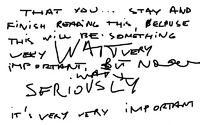 THAT YOU... STAY AND
FINISH READING THIS, BECAUSE
THIS WILL BE SOMETHING
VERY WAIT VERY
IMPORTANT, BUT NOW
WAIT
SERIOUSLY
IT'S VERY VERY IMPORTANT